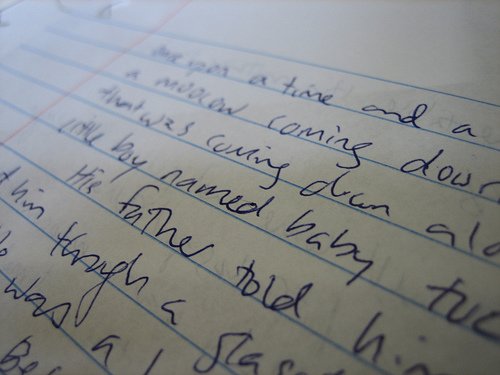 once upon a time and a
a moocow coming down
that was coming down alo
little boy named baby tuc
His father told him
him through a glass
was a
Be